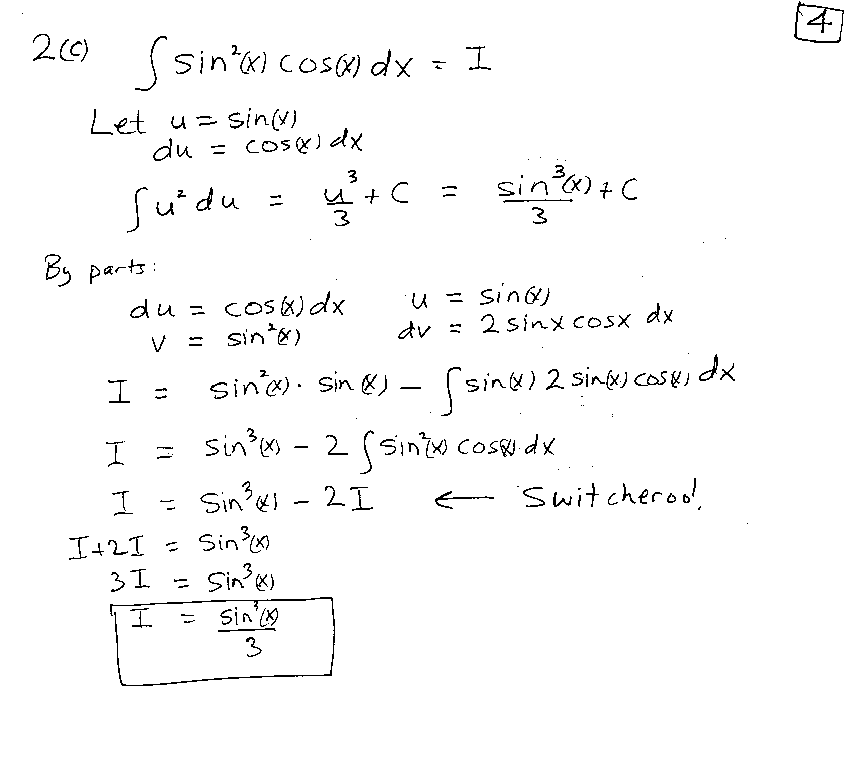 4
2(c) ∫ sin²(x) cos(x) dx = I
Let u = sin(x)
du = cos(x) dx
∫ u² du = u³/3 + C = sin³(x)/3 + C
By parts:
du = cos(x) dx u = sin(x)
v = sin²(x) dv = 2 sinx cosx dx
I = sin²(x) · sin(x) − ∫ sin(x) 2 sin(x) cos(x) dx
I = sin³(x) − 2 ∫ sin²(x) cos(x) dx
I = sin³(x) − 2I ← Switcheroo!
I+2I = sin³(x)
3I = sin³(x)
I = sin³(x)/3